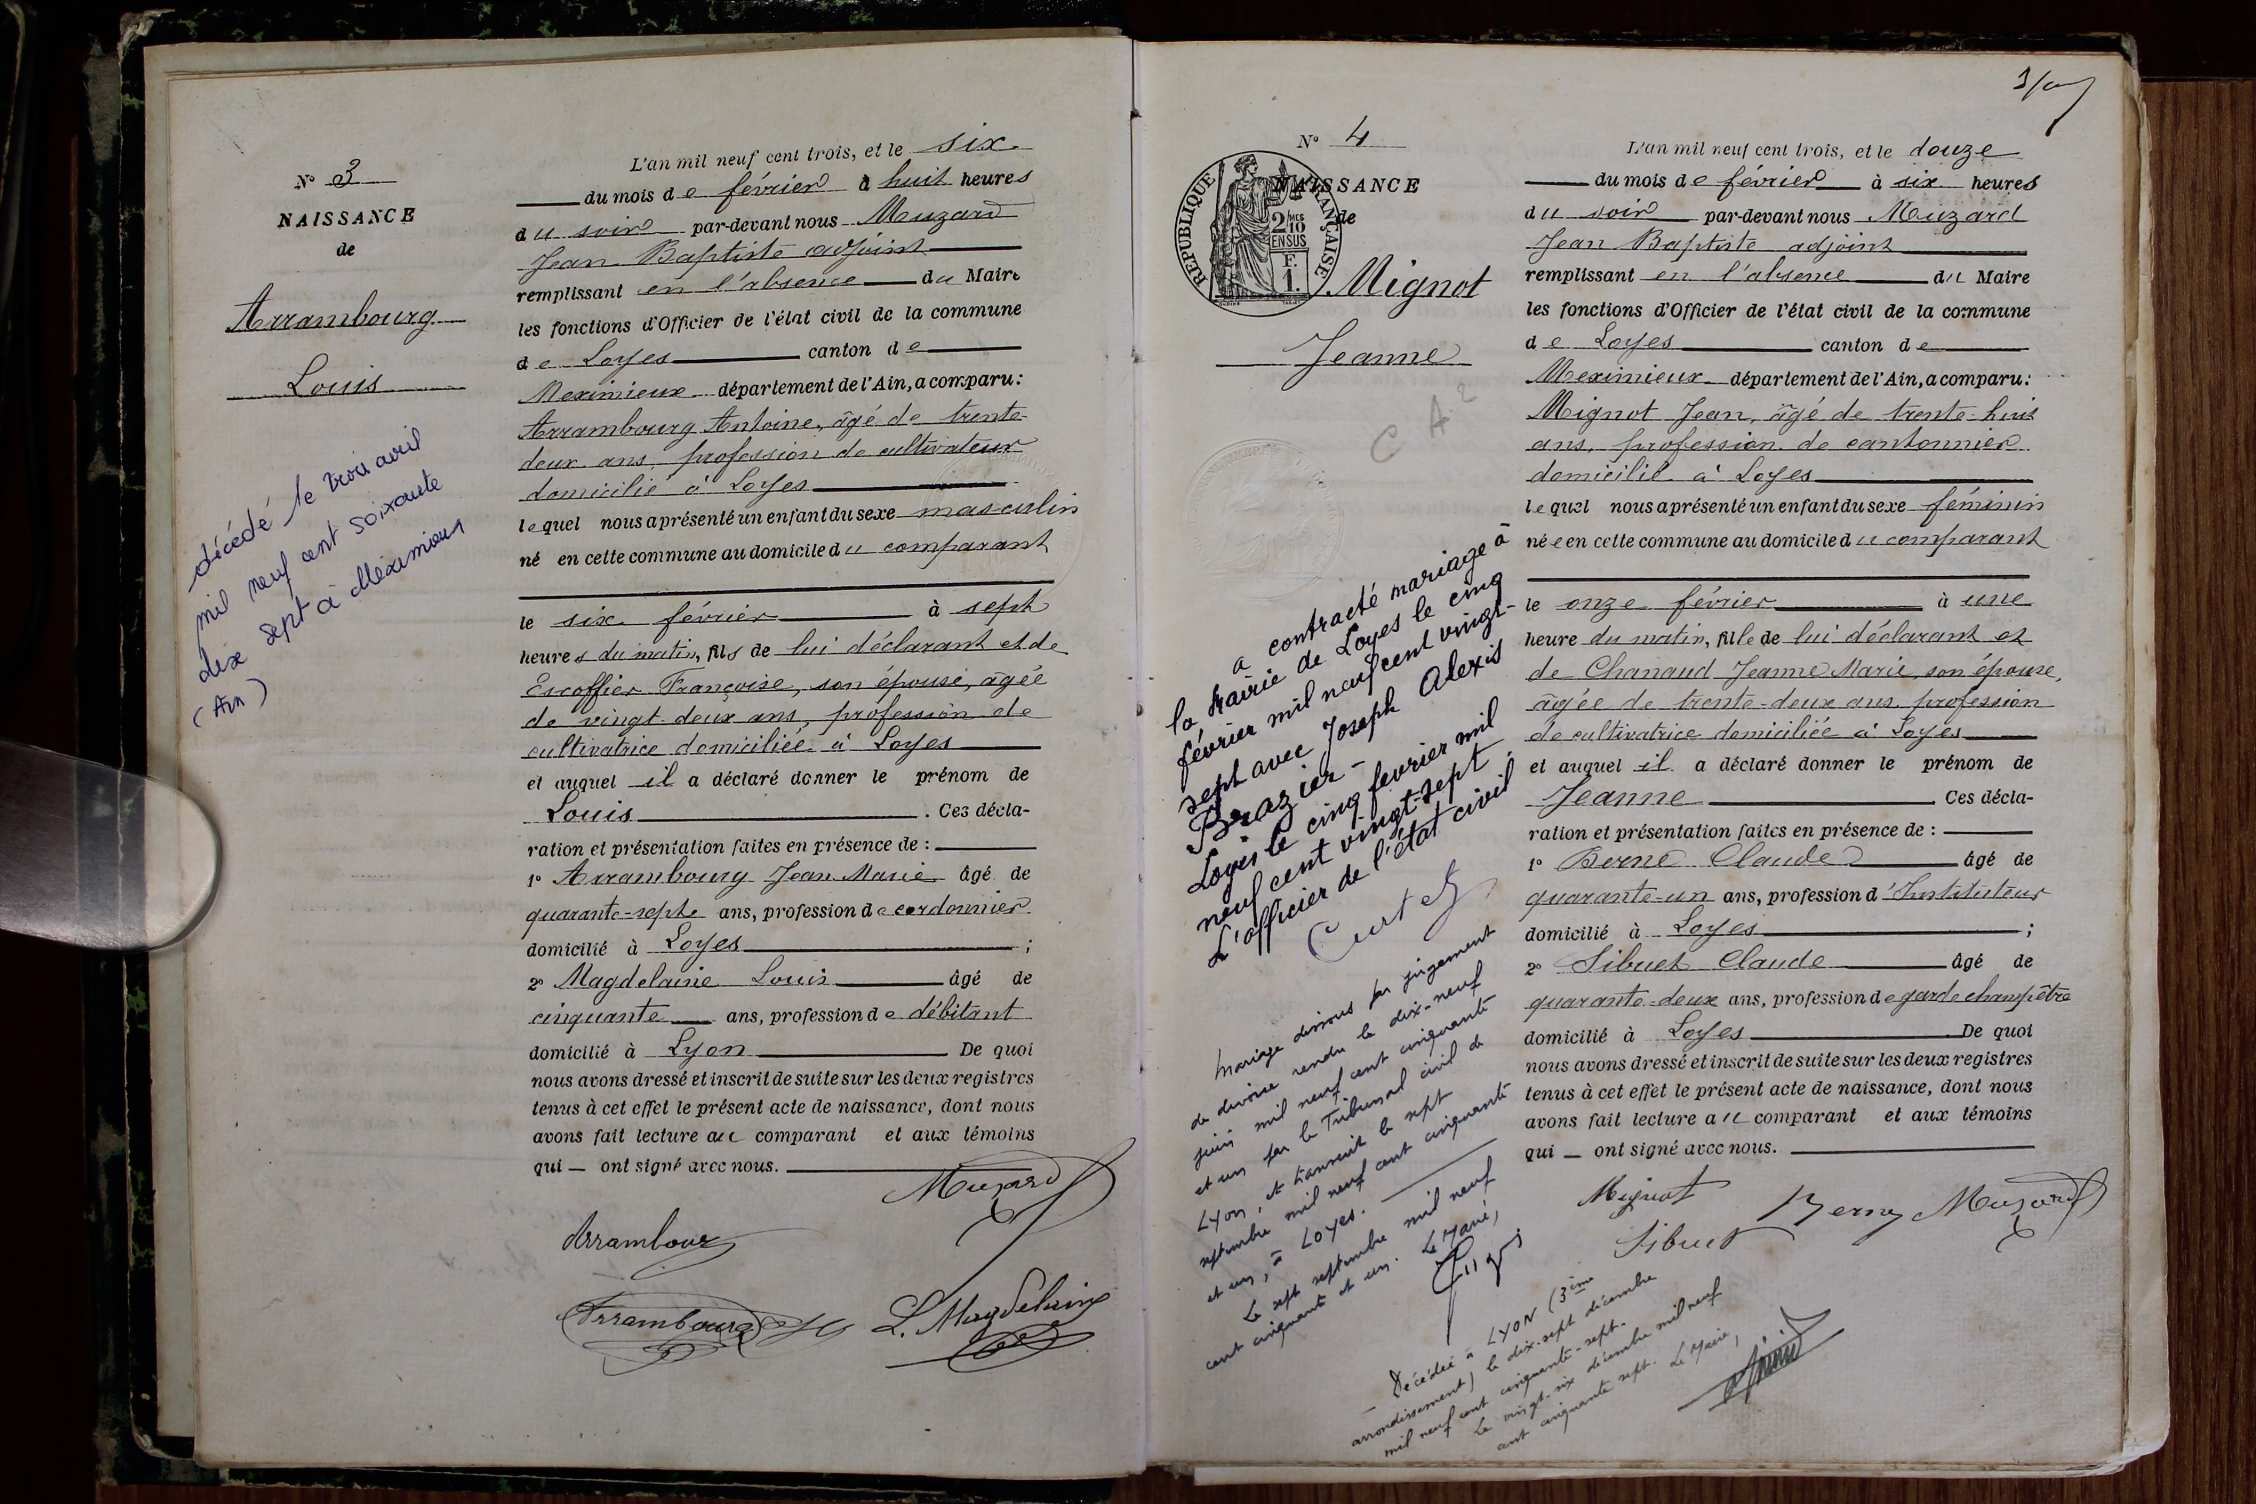 N° 3
NAISSANCE
de
Arrambourg
Louis
décédé le trois avril
mil neuf cent soixante
dix sept à Meximieux
(Ain)
L'an mil neuf cent trois, et le six
du mois de février à huit heures
du soir par-devant nous Muzard
Jean Baptiste adjoint
remplissant en l'absence du Maire
les fonctions d'Officier de l'état civil de la commune
de Loyes canton de
Meximieux département de l'Ain, a comparu:
Arrambourg Antoine, âgé de trente-
deux ans, profession de cultivateur
domicilié à Loyes
lequel nous a présenté un enfant du sexe masculin
né en cette commune au domicile du comparant
le six février à sept
heures du matin, fils de lui déclarant et de
Escoffier Françoise, son épouse, âgée
de vingt-deux ans, profession de
cultivatrice domiciliée à Loyes
et auquel il a déclaré donner le prénom de
Louis. Ces décla-
ration et présentation faites en présence de :
1° Arrambourg Jean Marie âgé de
quarante-sept ans, profession de cordonnier
domicilié à Loyes ;
2° Magdelaine Louis âgé de
cinquante ans, profession de débitant
domicilié à Lyon De quoi
nous avons dressé et inscrit de suite sur les deux registres
tenus à cet effet le présent acte de naissance, dont nous
avons fait lecture au comparant et aux témoins
qui — ont signé avec nous.
Muzard
Arrambour
Arrambourg
L. Magdelaine
N° 4
NAISSANCE
de
REPUBLIQUE FRANÇAISE
2/10 MES
EN SUS
F.
1.
Mignot
Jeanne
C A 2
a contracté mariage à
la mairie de Loyes le cinq
février mil neuf cent vingt-
sept avec Joseph Alexis
Brazier -
Loyes le cinq fevrier mil
neuf cent vingt-sept
L'officier de l'état civil
Curtet
Mariage dissous par jugement
de divorce rendu le dix-neuf
juin mil neuf cent cinquante
et un par le Tribunal civil de
Lyon, et transcrit le sept
septembre mil neuf cent cinquante
et un, à LOYES.
Le sept septembre mil neuf
cent cinquante et un. Le Maire,
L'an mil neuf cent trois, et le douze
du mois de février à six heures
du soir par-devant nous Muzard
Jean Baptiste adjoint
remplissant en l'absence du Maire
les fonctions d'Officier de l'état civil de la commune
de Loyes canton de
Meximieux département de l'Ain, a comparu:
Mignot Jean, âgé de trente-huit
ans, profession de cantonnier
domicilié à Loyes
lequel nous a présenté un enfant du sexe féminin
née en cette commune au domicile du comparant
le onze février à une
heure du matin, fille de lui déclarant et
de Chanaud Jeanne Marie, son épouse,
âgée de trente-deux ans, profession
de cultivatrice domiciliée à Loyes
et auquel il a déclaré donner le prénom de
Jeanne Ces décla-
ration et présentation faites en présence de :
1° Berne Claude âgé de
quarante-un ans, profession d'Instituteur
domicilié à Loyes ;
2° Sibuet Claude âgé de
quarante-deux ans, profession de garde champêtre
domicilié à Loyes De quoi
nous avons dressé et inscrit de suite sur les deux registres
tenus à cet effet le présent acte de naissance, dont nous
avons fait lecture au comparant et aux témoins
qui — ont signé avec nous.
Mignot Berne Muzard
Sibuet
Décédée à LYON (3ème
arrondissement) le dix-sept décembre
mil neuf cent cinquante-sept.
Le vingt-six décembre mil neuf
cent cinquante sept. Le Maire,